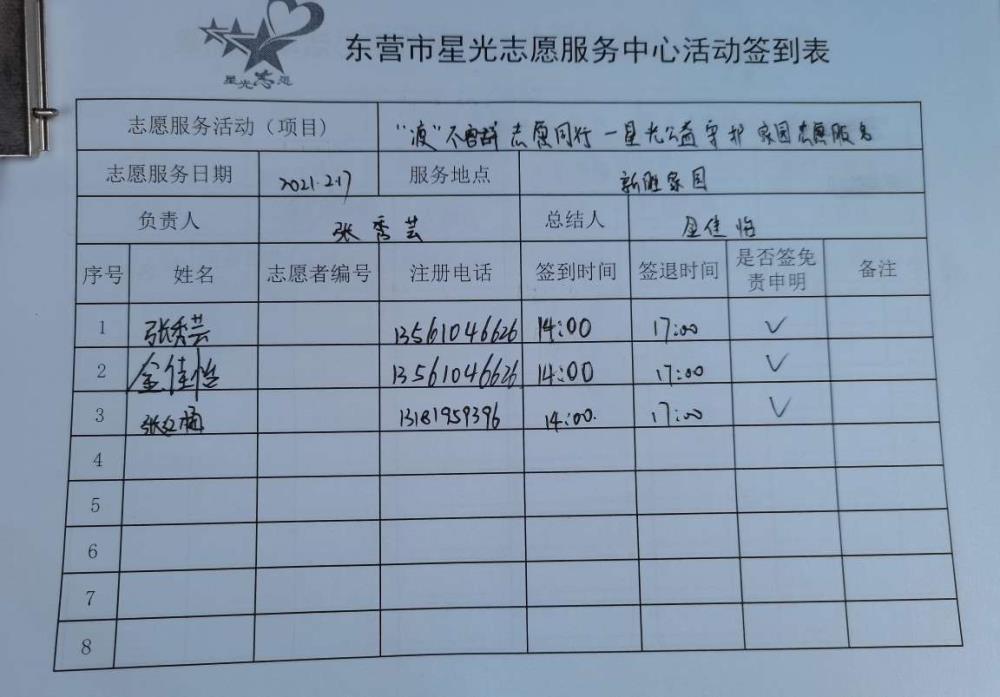 星光志愿
东营市星光志愿服务中心活动签到表
志愿服务活动（项目） "疫"不容辞 志愿同行 一星光公益守护 家园志愿服务
志愿服务日期 2021.2.17 服务地点 新胜家园
负责人 张秀芸 总结人 金佳怡
序号 姓名 志愿者编号 注册电话 签到时间 签退时间 是否签免责申明 备注
1 张秀芸 13561046626 14:00 17:00 ✓
2 金佳怡 13561046626 14:00 17:00 ✓
3 张红 13181959396 14:00. 17:00 ✓
4
5
6
7
8